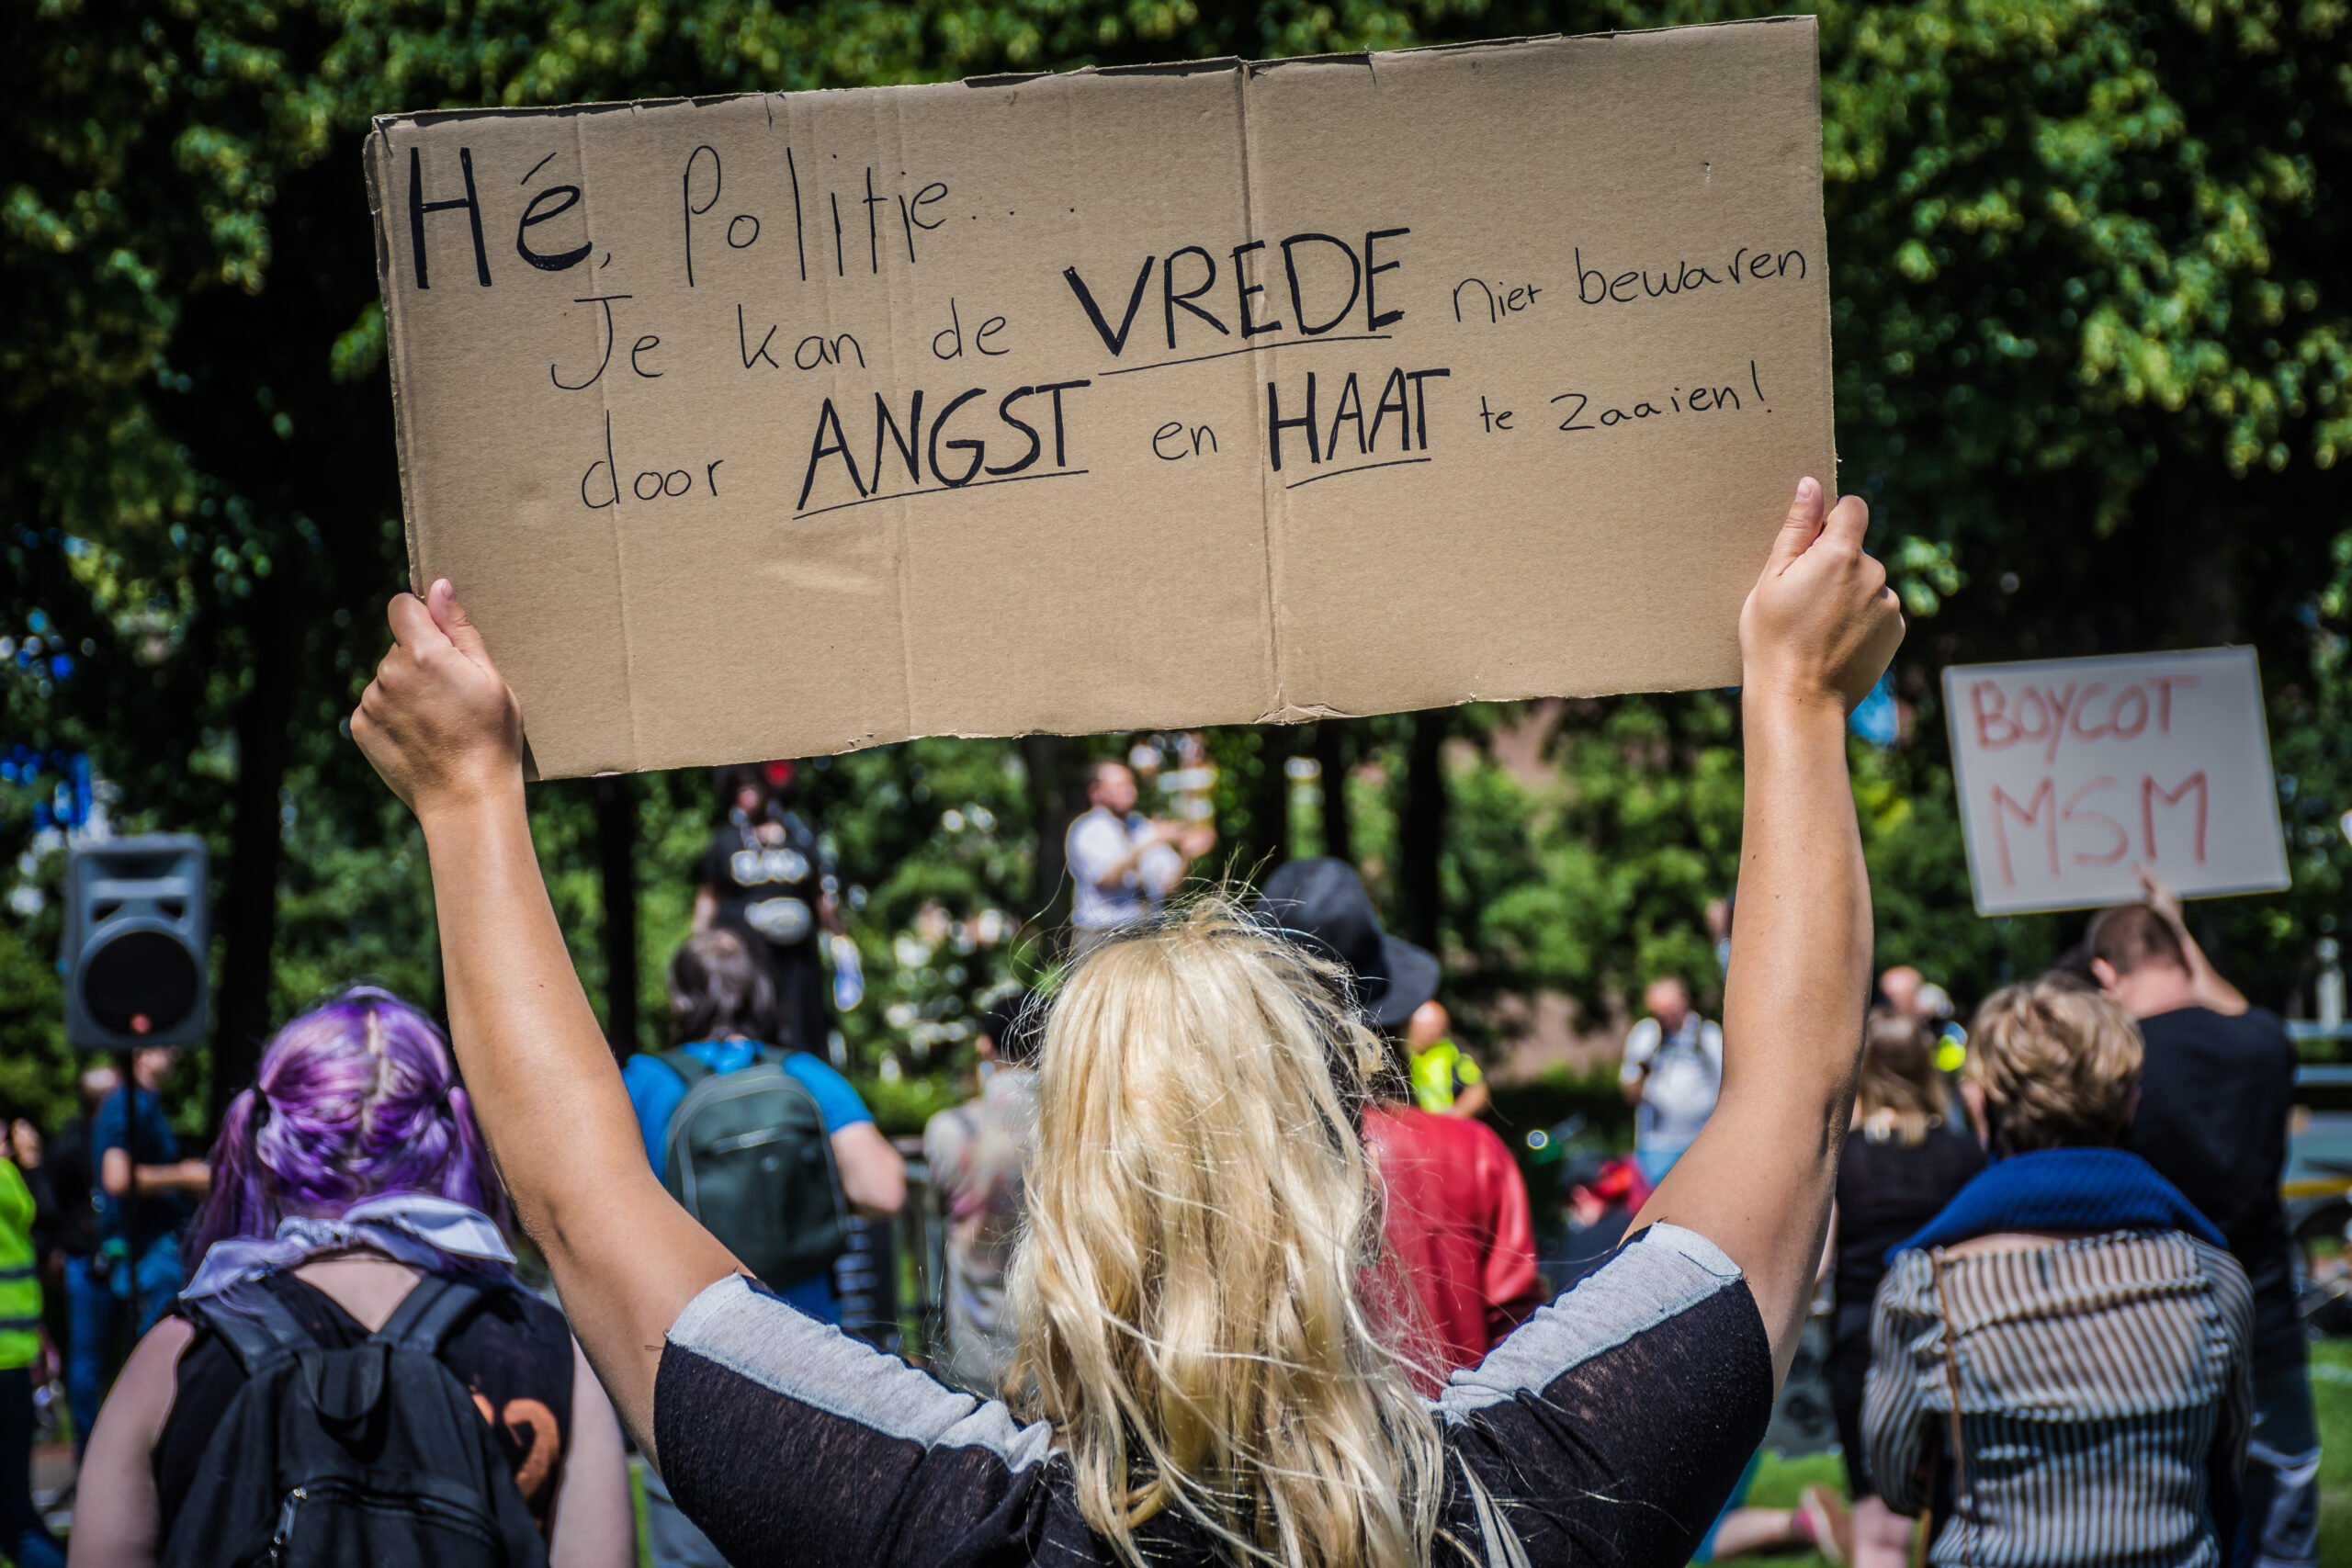 Hé, Politie...
Je kan de VREDE niet bewaren
door ANGST en HAAT te zaaien!
BOYCOT
MSM